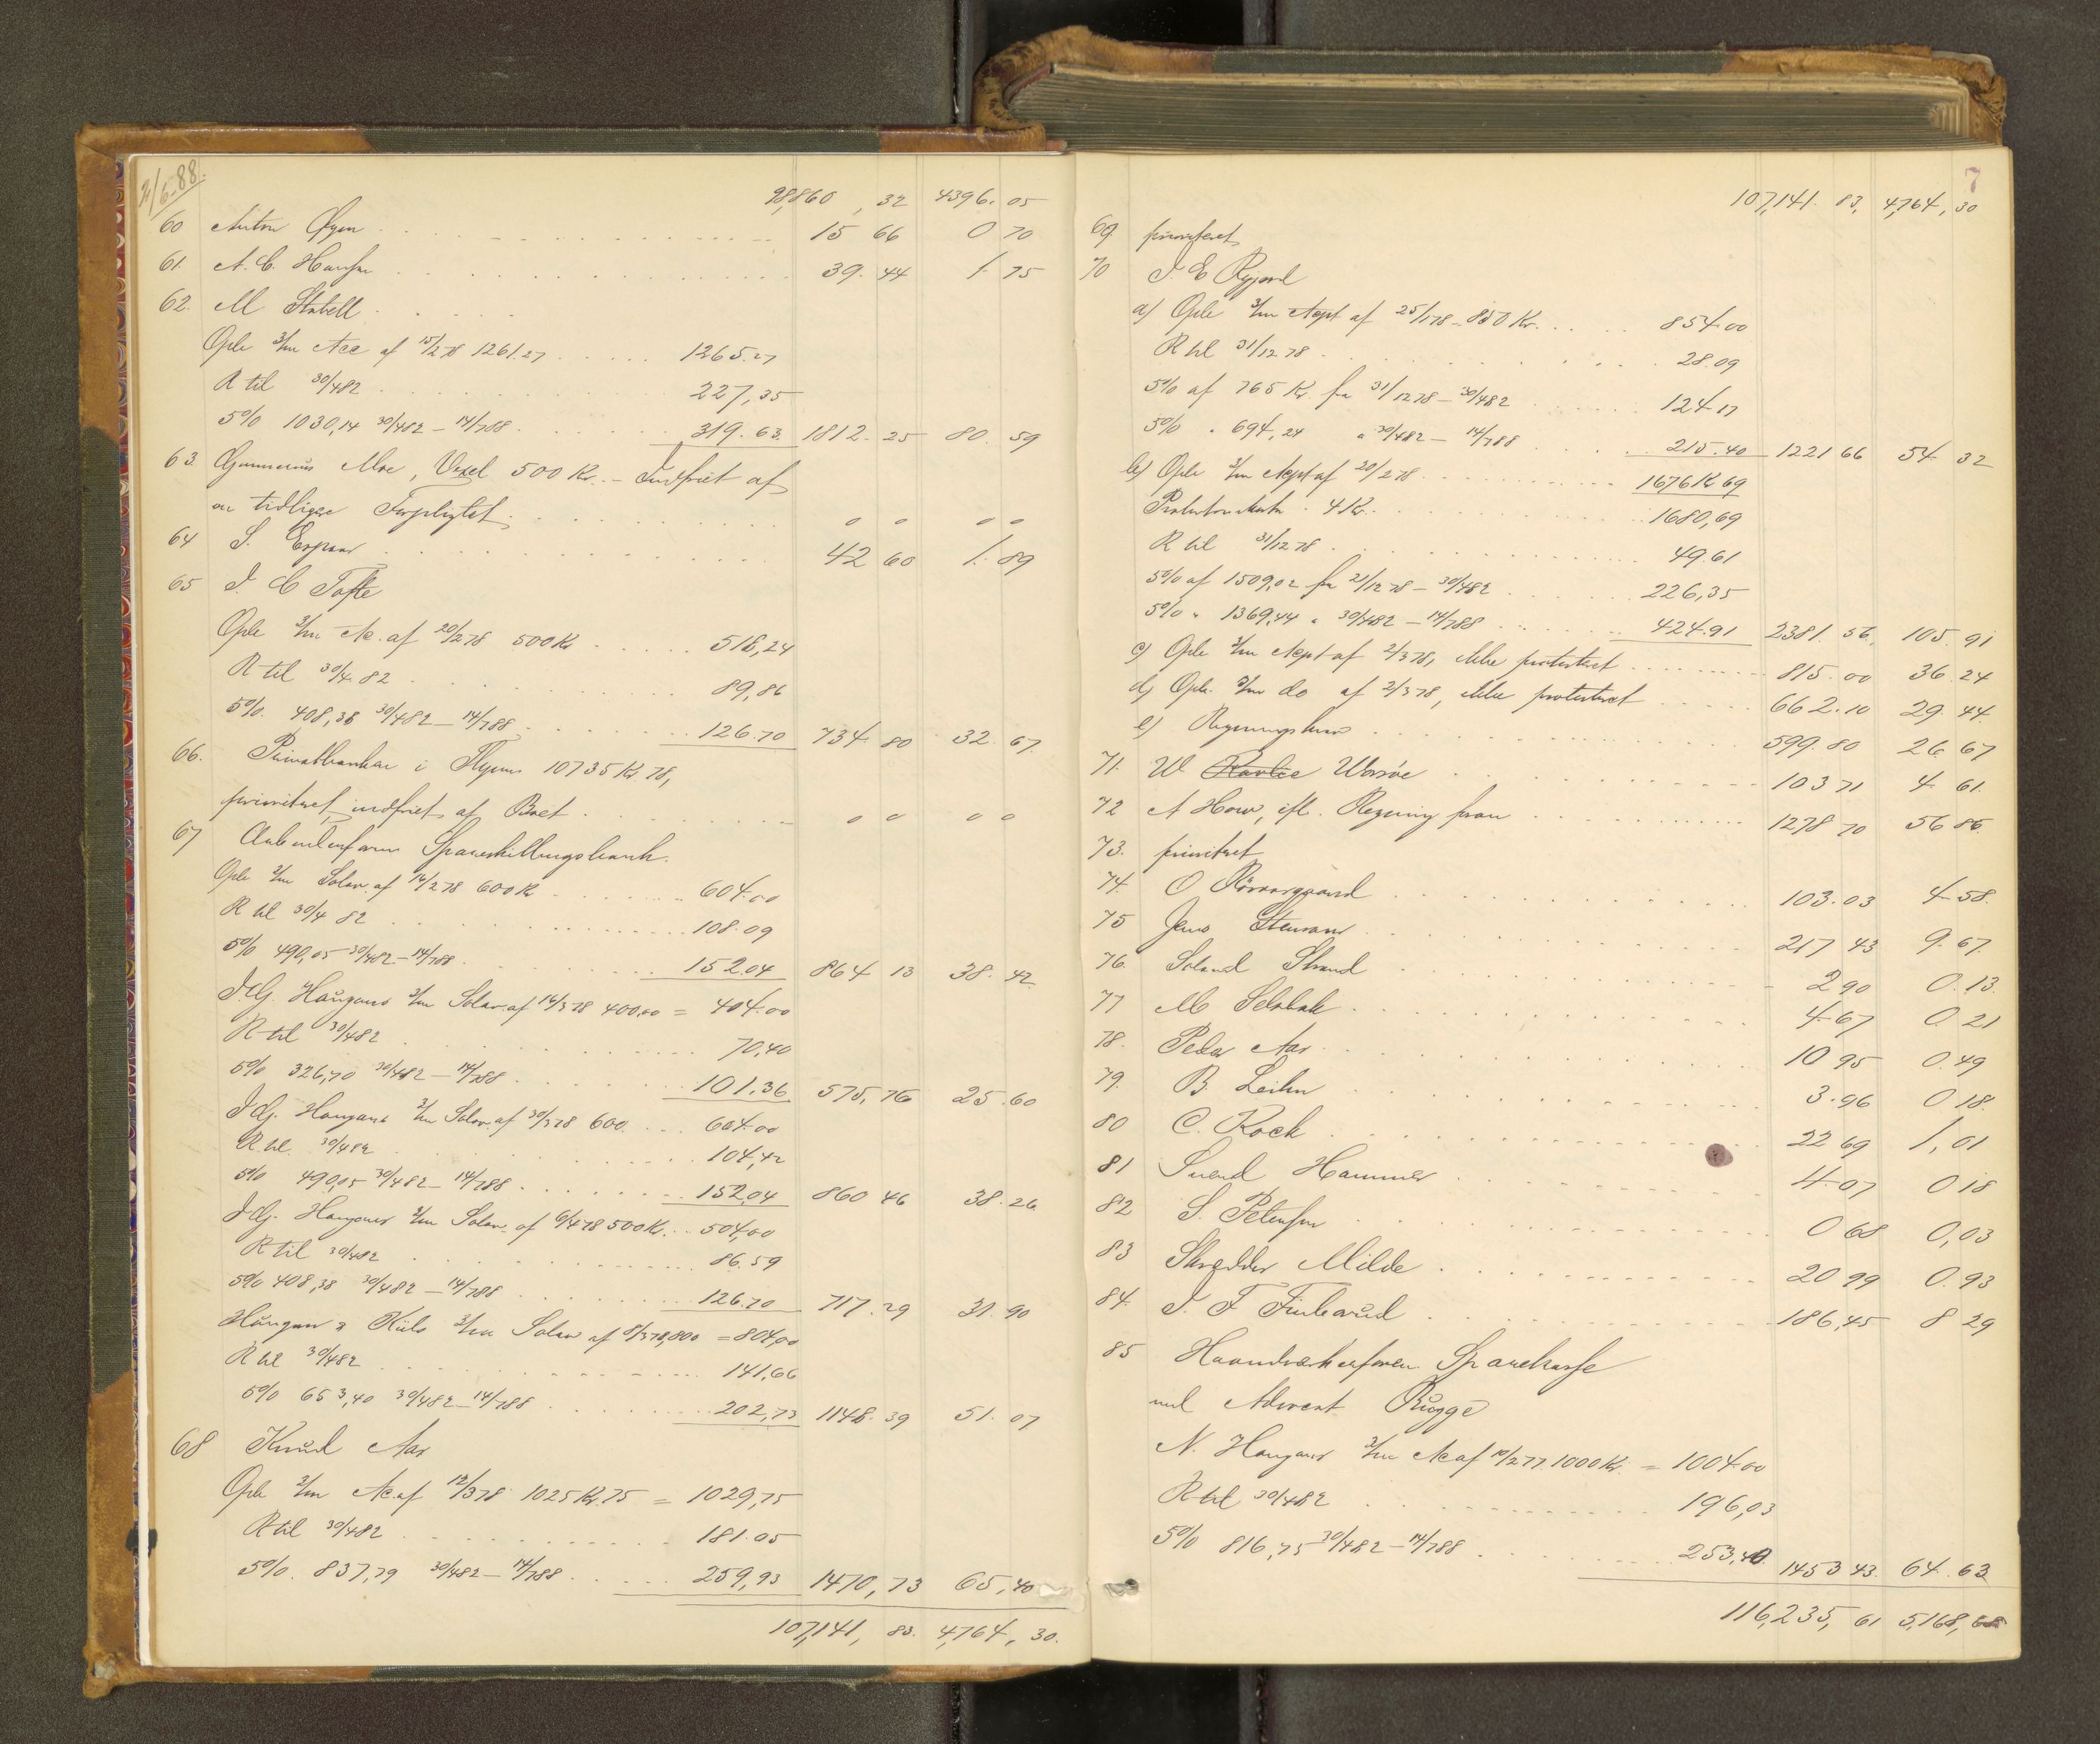 2/6-88.
98,860,32 4396.05
60 Anton Øyen 15 66 0 70
61. A. C. Hansen 39.44 1.75
62. M Stabell
Opl 3/m Acc af 15/2 78 1261.27 1265.27
R til 30/4 82 227,35
5% 1030,14 30/4 82 - 14/7 88 319.63 1812.25 80.59
63 Gunnerius Moe, Vexel 500 Kr. - Indfriet af
en tidligere Forpligtet 0 0 0 0
64 S. Espaas 42 60 1.89
65 I. C Tofte
Opl 3/m Ac. af 20/2 78 500 Kr 518,24
R til 30/4 82 89,86
5%. 408,38 30/4 82 - 14/7 88 126.70 734.80 32.67
66. Privatbanken i Thjem 10735 Kr. 78,
prioriteret, indfriet af Boet 0 0 0 0
67 Arbeiderforen Spareskillingsbank.
Opl 3/m Solav. af 16/2 78 600 K 604.00
R til 30/4 82 108.09
5% 490,05 30/4 82 - 14/7 88 152.04 864 13 38.42
I. G. Haugans 3/m Solav. af 16/3 78 400.00 = 404.00
R til 30/4 82 70,40
5% 326,70 30/4 82 - 14/7 88 101.36 575,76 25.60
I G. Haugans 3/m Solav. af 30/3 78 600 604.00
R til 30/4 82 104,42
5% 490,05 30/4 82 - 14/7 88 152,04 860 46 38.26
I G. Haugans 3/m Solav. af 6/4 78 500 Kr. 504,00
R til 30/4 82 86.59
5% 408,38 30/4 82 - 14/7 88 126.70 717.29 31.90
Haugan & 3/m Solav af 8/3 78, 800 = 804,00
R til 30/4 82 141.66
5% 653,40 30/4 82 - 14/7 88 202,73 1148.39 51.07
68 Knud Aas
Opl 3/m Ac. af 12/3 78 1025 Kr. 75 = 1029,75
R til 30/4 82 181.05
5%. 837,79 30/4 82 - 14/7 88 259,93 1470,73 65,40
107,141,83. 4,764,30.
7
107,141.83, 4,764,30
69 prioriteret
70 I. E Ryjord
a) Opl 3/m Acpt af 25/1 78 - 850 Kr. 854.00
R til 31/12 78 28.09
5% af 765 Kr. fra 31/12 78 - 30/4 82 124.17
5% " 694,24 " 30/4 82 - 14/7 88 215.40 1221 66 54 32
b) Opl 3/m Acpt af 20/2 78 1676 Kr 69
4 Kr. 1680,69
R til 31/12 78 49.61
5% af 1509,02 fra 31/12 78 - 30/4 82 226,35
5% " 1369,44 " 30/4 82 - 14/7 88 424.91 2381.56, 105.91
c) Opl 3/m Acpt af 2/3 78, ikke protesteret 815.00 36.24
d) Opl. 3/m do af 2/3 78, ikke protesteret 662.10 29.44
e) Regningskrav 599.80 26.67
71. W Worsøe 103 71 4 61.
72 A Horn, ifl. Regning 1278 70 56 86
73. prioriteret
74. O 103.03 4 58.
75 Jens Stensaas 217 43 9.67.
76. Strand 2 90 0.13.
77 M Selsbak 4 67 0 21
78. Peder Aas 10 95 0.49
79. B. 3.96 0 18.
80 C. Kock 22 69 1,01
81 Svend Hammer 4 07 0 18
82 S. Petersen 0 68 0,03
83 Skrædder Milde 20 99 0.93
84. I. F 186,45 8 29
85 Haandværkerforen Sparekasse
ved Advocat Bugge
N. Haugans 3/m Ac af 10/2 77. 1000 Kr. = 1004.00
R til 30/4 82 196,03
5% 816,75 30/4 82 - 14/7 88 253,40 1453 43. 64.63
116,235,61 5,168,68